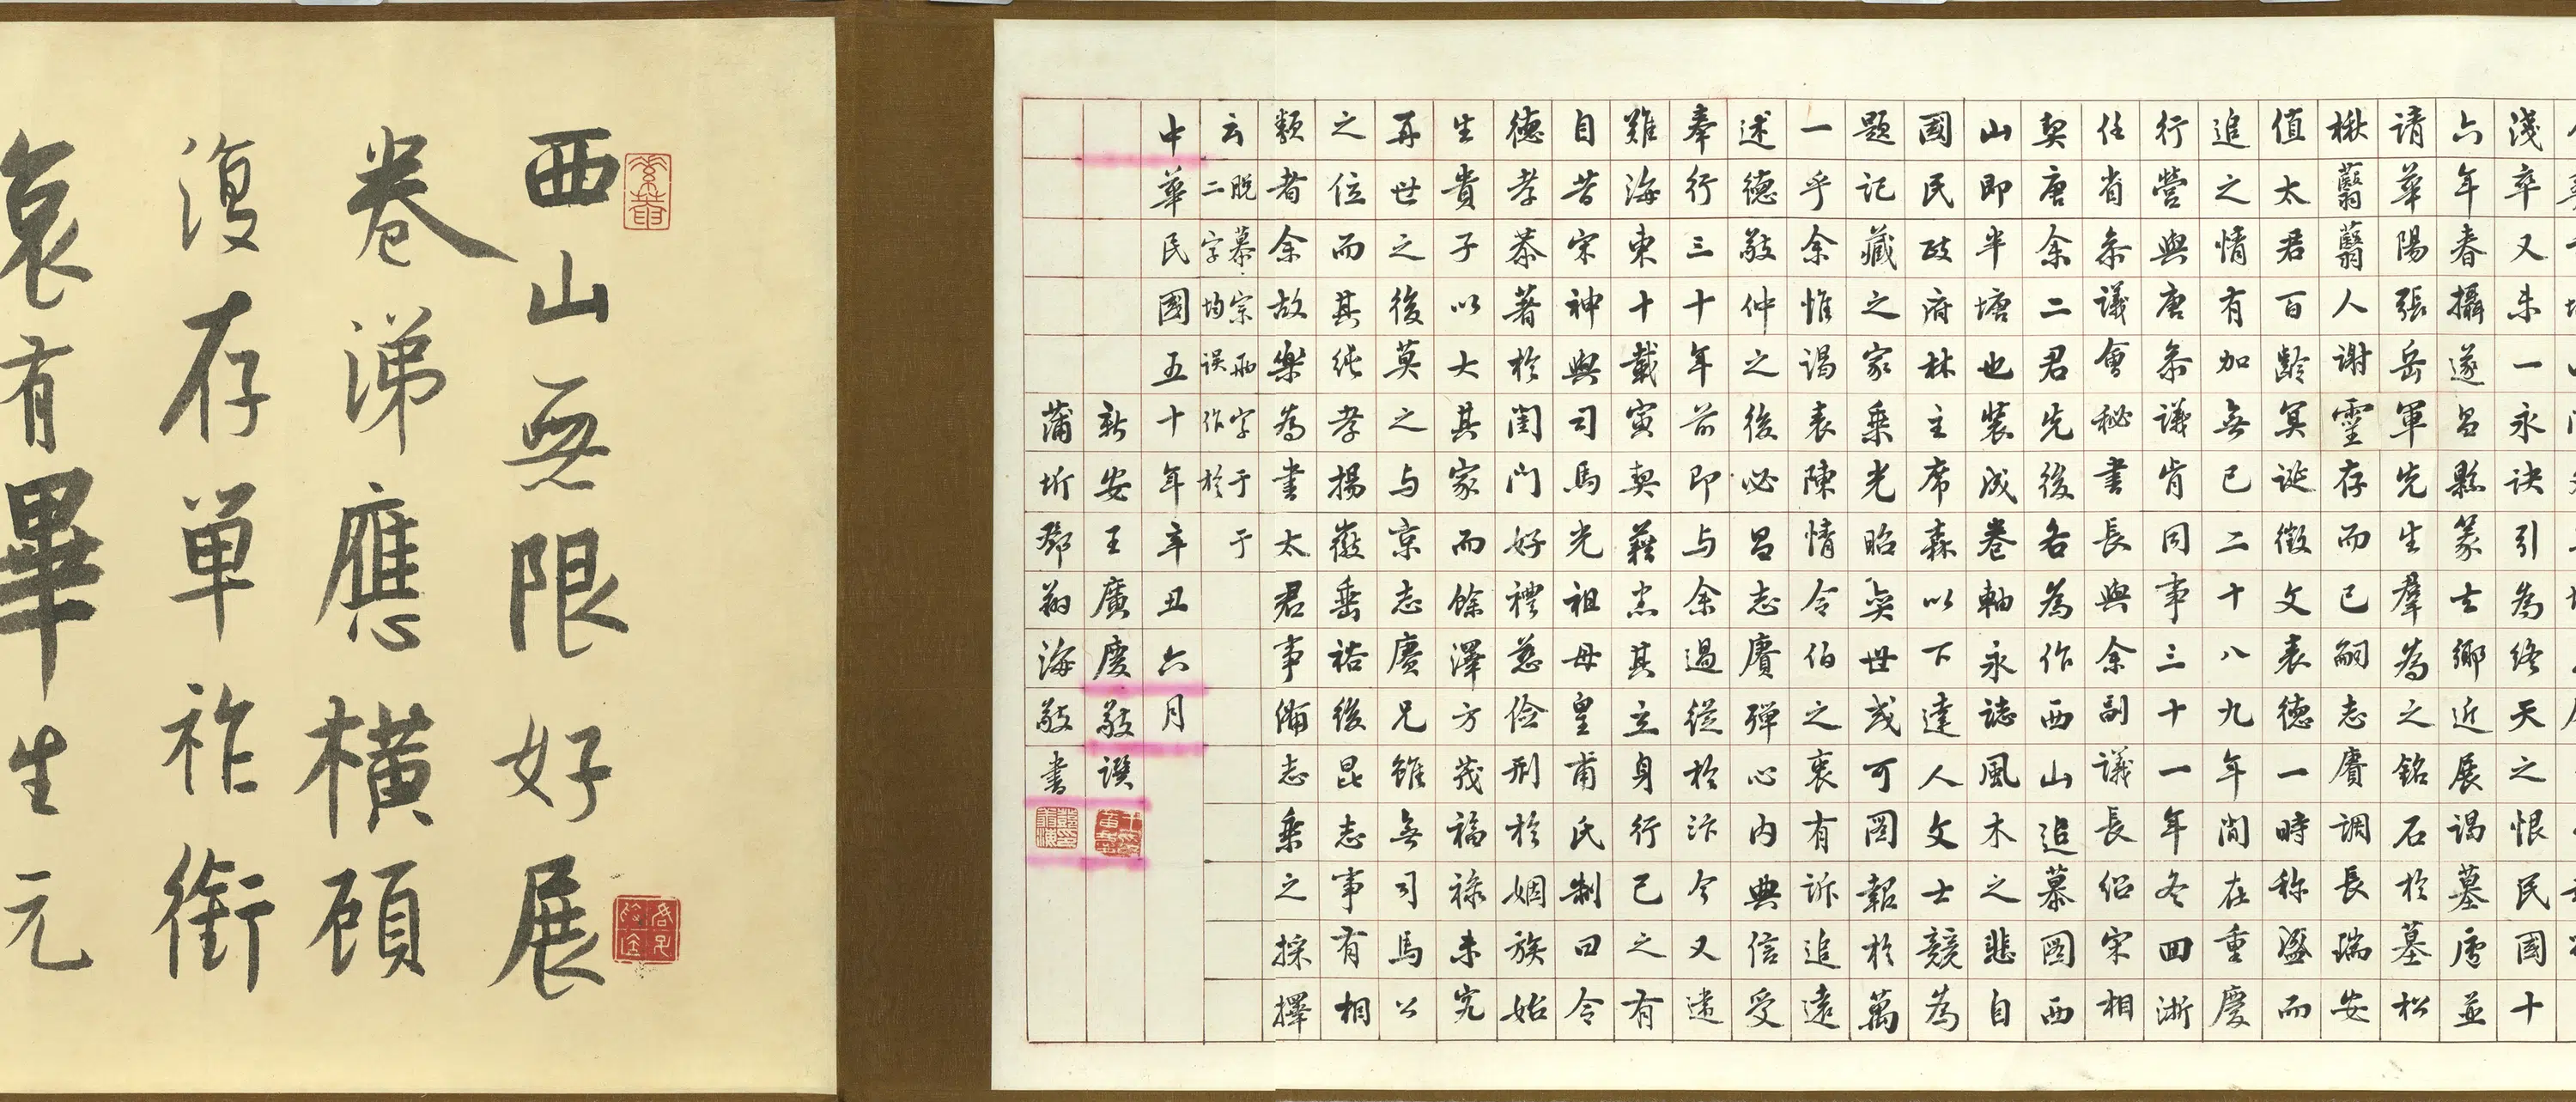 淺卒又未一永訣引為終天之恨民國十
六年春攝遂昌縣篆去鄉近展謁墓廬並
請華陽張岳軍先生羣為之銘石於墓松
楸蘙蘙人謝靈存而已嗣志賡調長瑞安
值太君百齡冥誕徵文表德一時称盛而
追之情有加無已二十八九年間在重慶
行營與唐条議肯同事三十一年冬回浙
任省条議會秘書長與余副議長侶宋相
契唐余二君先後各為作西山追慕圖西
山即半塘也裝成卷軸永誌風木之悲自
國民政府林主席森以下達人文士競為
題記藏之家乗光昭奕世或可圖報於萬
一乎余惟謁表陳情令伯之衷有訴追遠
述德敬仲之後必昌志賡殫心内典信受
奉行三十年前即与余過從於汴今又遘
難海東十載寅契藉悉其立身行己之有
自昔宋神與司馬光祖母皇甫氏制曰令
德孝恭著於閨门好禮慈儉刑於姻族始
生貴子以大其家而餘澤方茂福祿未完
再世之後莫之与京志賡兄雖無司馬公
之位而其純孝揚徽垂裕後昆志事有相
類者余故樂為書太君事備志乗之採擇
云 脱慕宗兩字于于
二字均誤作於
中華民國五十年辛丑六月
新安王廣慶敬譔
蒲圻鄧翔海敬書
西山無限好展
卷涕應橫頤
復存単祚銜
哀有畢生元